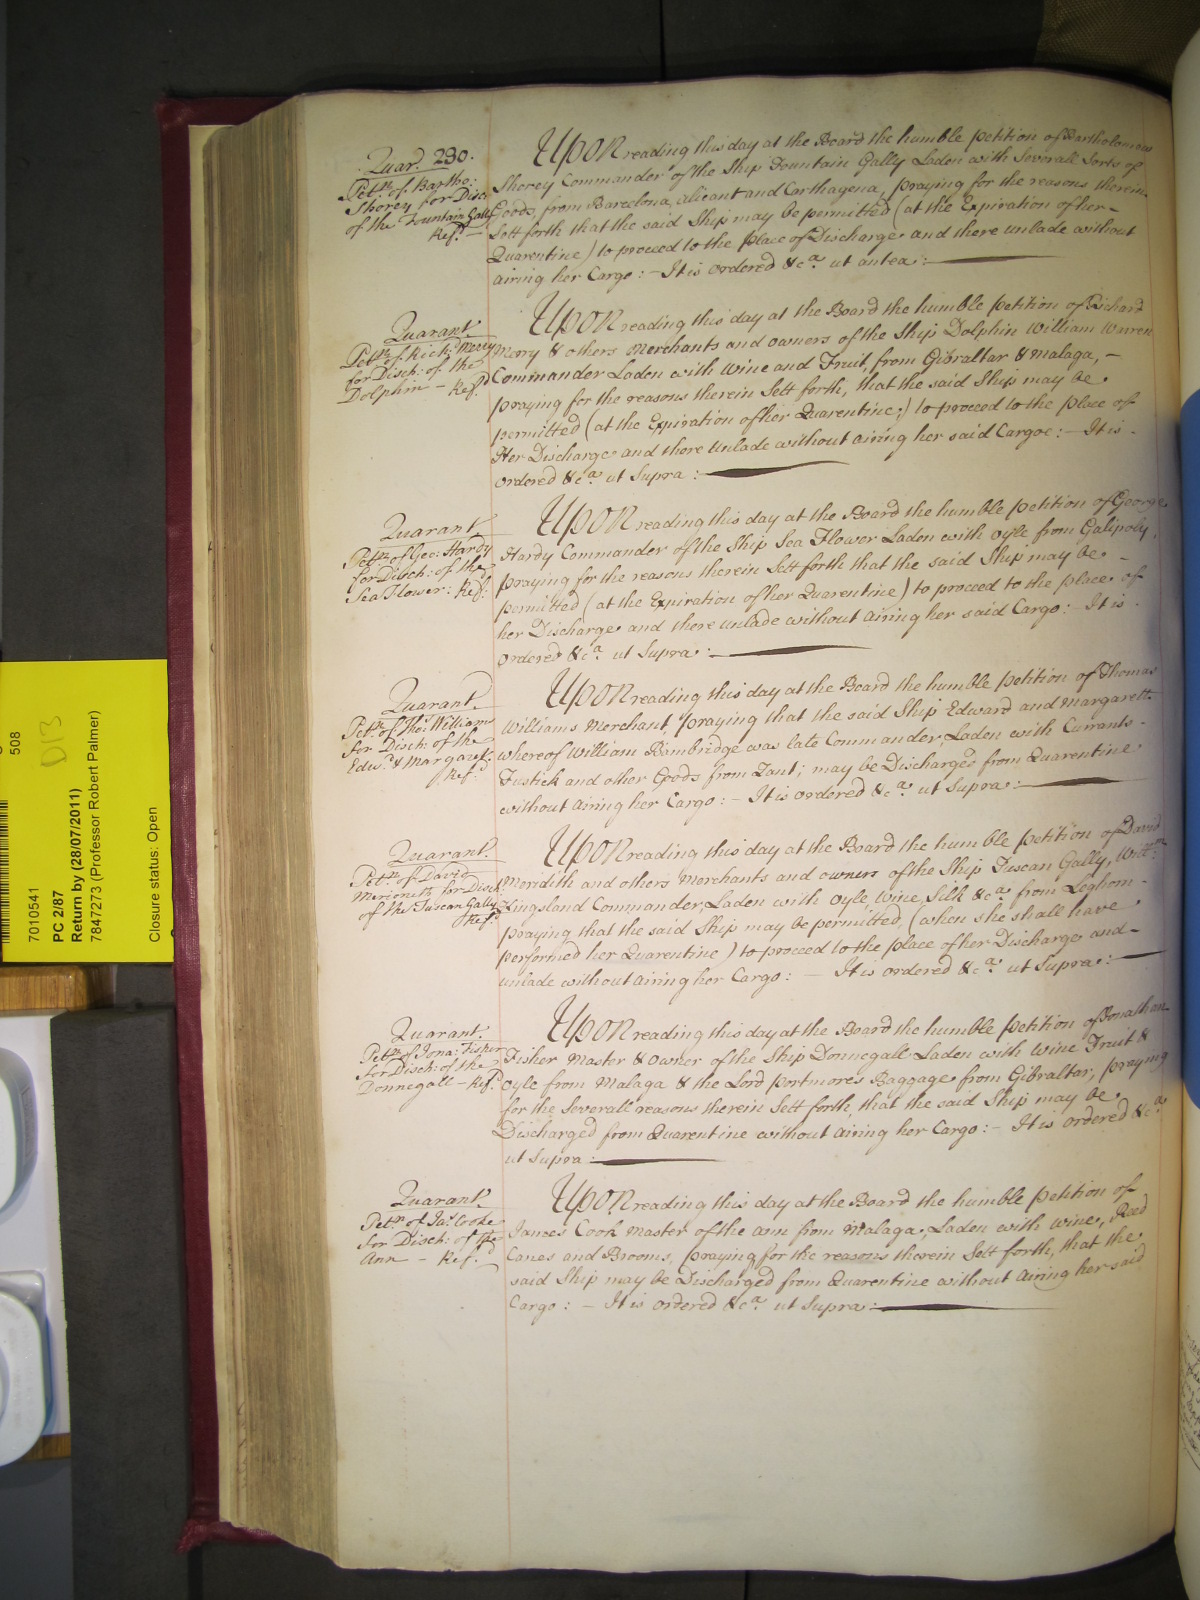 Quar.t 230.
Pet.n of Bartho:
Shorey for Disch
of the Fountain Gally
Ref.d
UPON reading this day at the Board the humble Petition of Bartholomew
Shorey Commander of the Ship Fountain Gally Laden with Severall Sorts of
Goods, from Barcelona, alicant and Carthagena, praying for the reasons therein
Sett forth that the said Ship may be permitted (at the Expiration of her
Quarentine) to proceed to the place of Discharge and there unlade without
airing her Cargo: - It is ordered &c.a ut antea:
Quarant.
Pet.n of Rich.d Merry
for Disch: of the
Dolphin - Ref.d
UPON reading this day at the Board the humble Petition of Richard
Merry & others Merchants and owners of the Ship Dolphin William Warren
Commander Laden with Wine and Fruit, from Gibraltar & Malaga, -
praying for the reasons therein Sett forth, that the said Ship may be
permitted (at the Expiration of her Quarentine;) to proceed to the place of
Her Discharge and there Unlade without airing her said Cargoe: - It is -
ordered &c.a ut Supra:
Quarant
Pet.n of Geo: Hardy
for Disch: of the
Sea Flower: Ref.d
UPON reading this day at the Board the humble Petition of George
Hardy Commander of the Ship Sea Flower Laden with oyle from Galipoly,
praying for the reasons therein Sett forth that the said Ship may be -
permitted (at the Expiration of her Quarentine) to proceed to the place of
her Discharge and there unlade without airing her said Cargo: - It is -
ordered &c.a ut Supra:
Quarant.
Pet.n of Tho: Williams
for Disch: of the
Edw.d & Margarett
Ref.d
UPON reading this day at the Board the humble Petition of Thomas
Williams Merchant, praying that the said Ship Edward and Margarett
whereof William Bambridge was late Commander, Laden with Currants -
Fustick and other Goods from Zant; may be Discharged from Quarentine
without airing her Cargo: - It is ordered &c.a ut Supra:
Quarant.
Pet.n of David
Merideth for Disch:
of the Tuscan Gally
Ref.d
UPON reading this day at the Board the humble Petition of David
Meridith and others Merchants and owners of the Ship Tuscan Gally, Will.m
Kingsland Commander, Laden with oyle, Wine, Silk &c.a from Leghorn -
praying that the said Ship may be permitted, (when she shall have
performed her Quarentine) to proceed to the place of her Discharge and -
unlade without airing her Cargo: - It is ordered &c.a ut Supra:
Quarant.
Pet.n of Jona: Fisher
for Disch: of the
Donnegall - Ref.d
UPON reading this day at the Board the humble Petition of Jonathan
Fisher Master & Owner of the Ship Donnegall Laden with Wine Fruit &
oyle from Malaga & the Lord Portmores Baggage from Gibraltar, praying
for the Severall reasons therein Sett forth, that the said Ship may be
Discharged from Quarentine without airing her Cargo: - It is ordered &c.a
ut Supra:
Quarant.
Pet.n of Ja.s Cooke
for Disch: of the
Ann - Ref.d
UPON reading this day at the Board the humble Petition of
James Cook Master of the ann from Malaga, Laden with wine, Reed
Canes and Brooms, praying for the reasons therein Sett forth, that the
said Ship may be Discharged from Quarentine without airing her said
Cargo: - It is ordered &c.a ut Supra:
508
D13
7010541
PC 2/87
Return by (28/07/2011)
7847273 (Professor Robert Palmer)
Closure status: Open